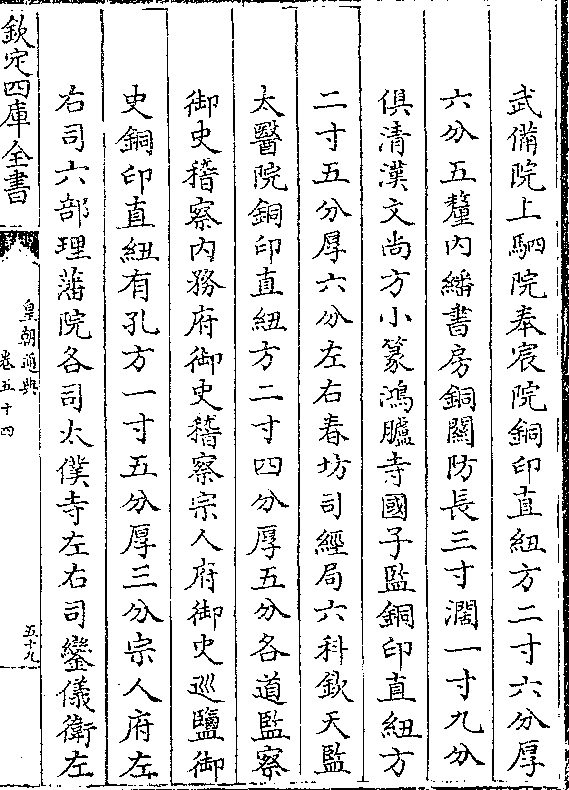 武備院上駟院奉宸院銅印直紐方二寸六分厚
六分五釐内繙書房銅關防長三寸濶一寸九分
俱清漢文尚方小篆鴻臚寺國子監銅印直紐方
二寸五分厚六分左右春坊司經局六科欽天監
太醫院銅印直紐方二寸四分厚五分各道監察
御史稽察内務府御史稽察宗人府御史巡鹽御
史銅印直紐有孔方一寸五分厚三分宗人府左
右司六部理藩院各司太僕寺左右司鑾儀衛左
欽定四庫全書
皇朝通典
卷五十四
五十九